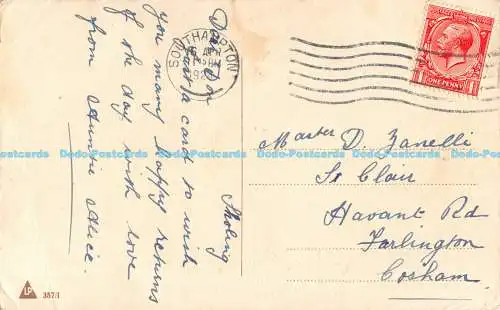 Sholing
Dear Don
Just a card to wish
you many happy returns
of the day with love
from Auntie Alice.
SOUTHAMPTON
ONE PENNY
Master D. Zanelli
St Clair
Havant Rd
Farlington
Cosham
LP
387/1
Dodo-Postcards Dodo-Postcards Dodo-Postcards Dodo-Postcards Dodo-Postcards Dodo-Postcards